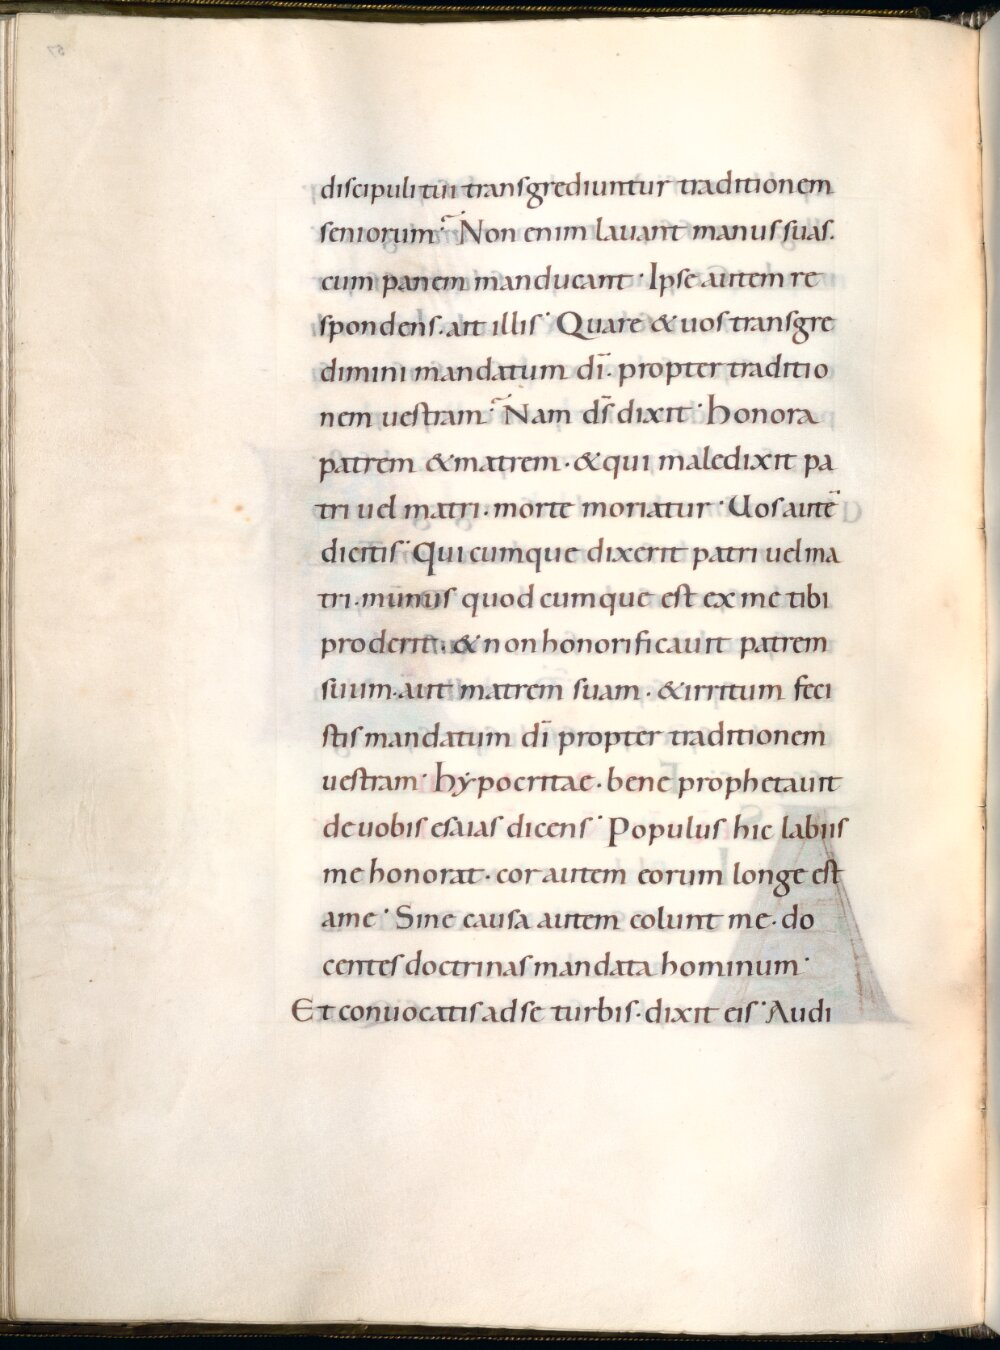 discipuli tui transgrediuntur traditionem
seniorum? Non enim lavant manus suas.
cum panem manducant· Ipse autem re
spondens. ait illis· Quare & uos transgre
dimini mandatum dī· propter traditio
nem uestram? Nam dS̄ dixit· honora
patrem & matrem· & qui maledixit pa
tri uel matri· morte moriatur· Uos autē
dicitis· Quicumque dixerit patri uel ma
tri· munus quodcumque est ex me tibi
proderit· & non honorificauit patrem
suum. aut matrem suam· & irritum feci
stis mandatum dī propter traditionem
uestram· hypocritae· bene prophetauit
de uobis esaias dicens· Populus hic labiis
me honorat· cor autem eorum longe est
a me· Sine causa autem colunt me· do
centes doctrinas mandata hominum·
Et conuocatis ad se turbis· dixit eis· Audi